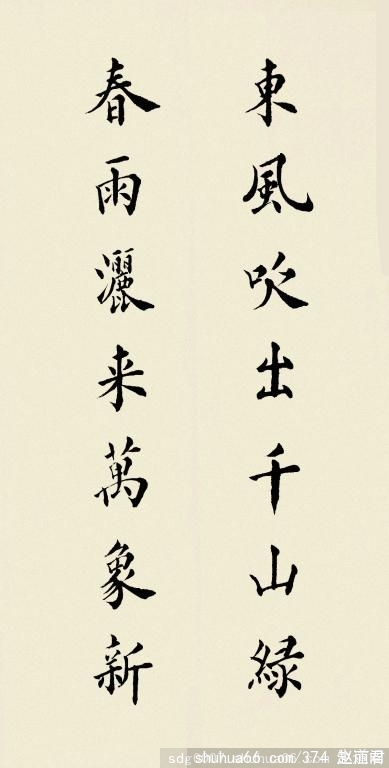 東風吹出千山緑
春雨灑来萬象新
shuhua66.com/374